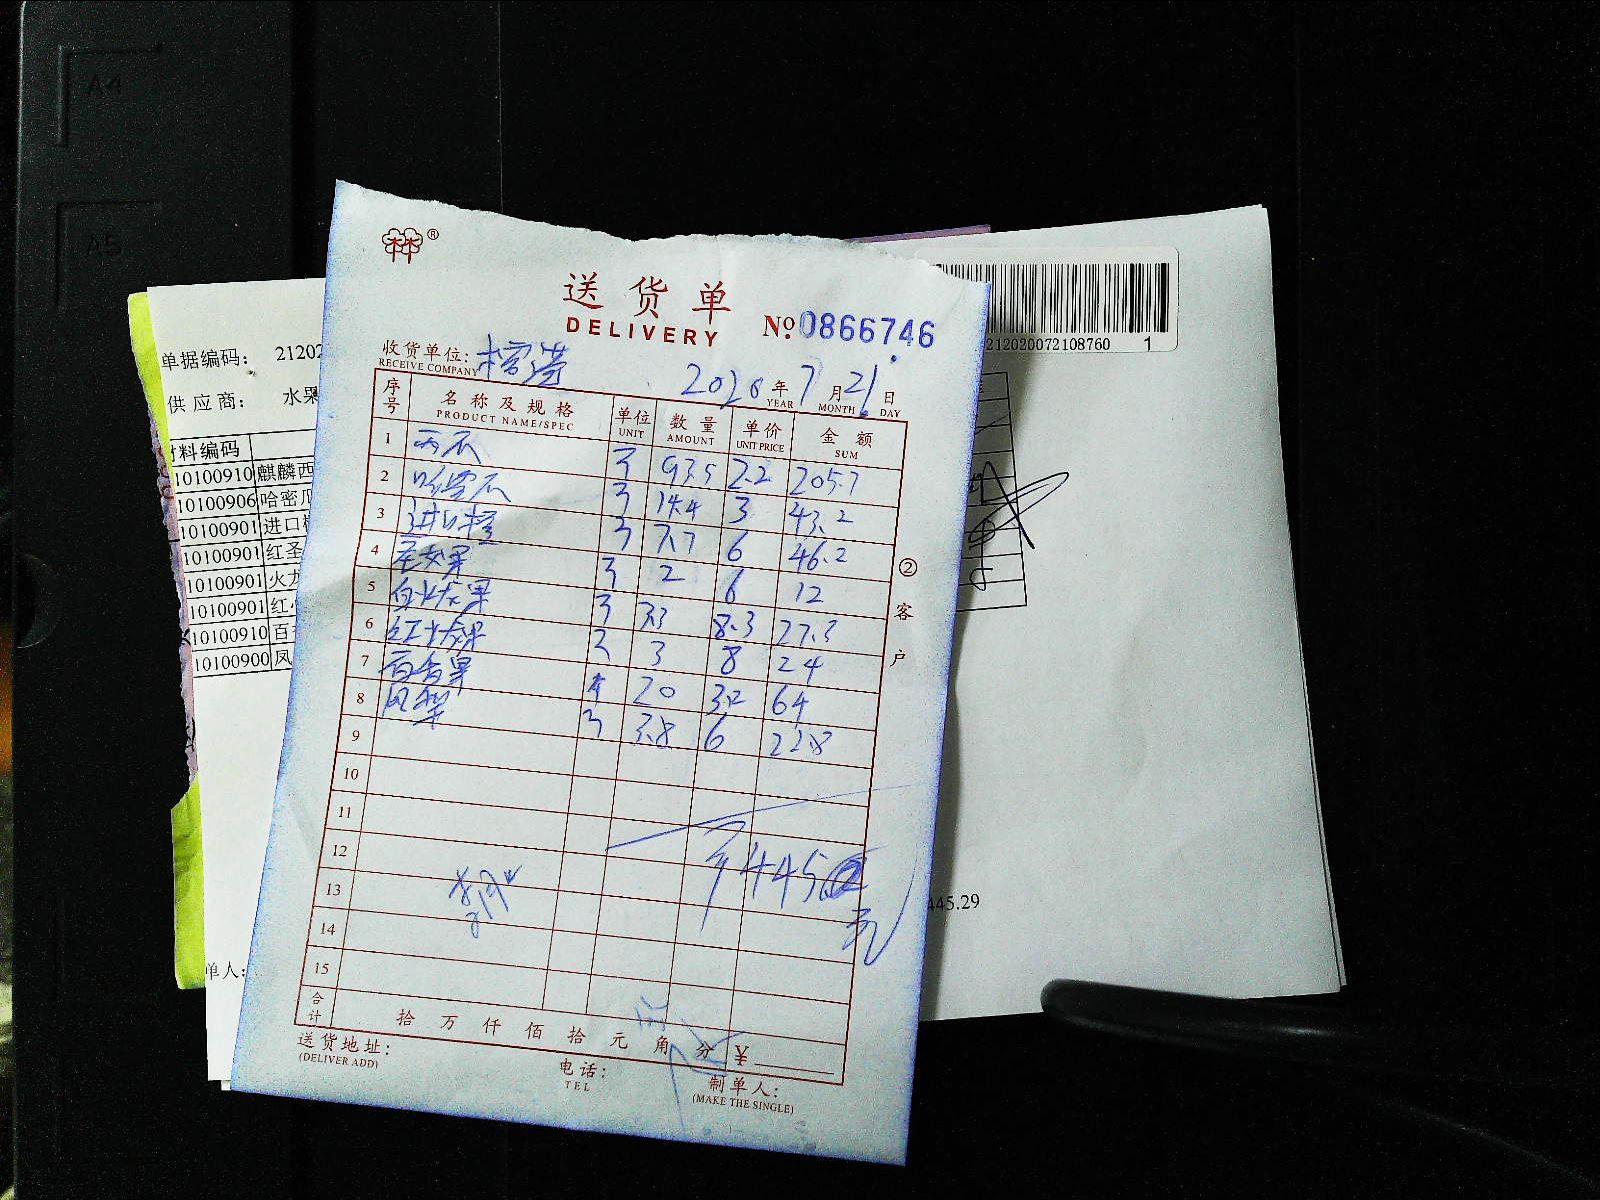 A4
A5
®
送货单
DELIVERY
№ 0866746
收货单位:
RECEIVE COMPANY
2020 年 7 月 21 日
YEAR MONTH DAY
序号 名称及规格 单位 数量 单价 金额
PRODUCT NAME/SPEC UNIT AMOUNT UNIT PRICE SUM
1 西瓜 斤 93.5 2.2 205.7
2 哈密瓜 斤 14.4 3 43.2
3 进口橙 斤 7.7 6 46.2
4 圣女果 斤 2 6 12
5 白火龙果 斤 3.3 8.3 27.3
6 红火龙果 斤 3 8 24
7 百香果 个 20 3.2 64
8 凤梨 斤 3.8 6 22.8
9
10
11
12
13
14
15
445
元
合计 拾 万 仟 佰 拾 元 角 分 ¥
送货地址:
(DELIVER ADD)
电话:
TEL
制单人:
(MAKE THE SINGLE)
②客户
单据编码: 21202
供应商: 水果
材料编码
10100910 麒麟西
10100906 哈密瓜
10100901 进口橙
10100901 红圣
10100901 火龙
10100901 红心
10100910 百香
10100900 凤
单人:
212020072108760 1
445.29